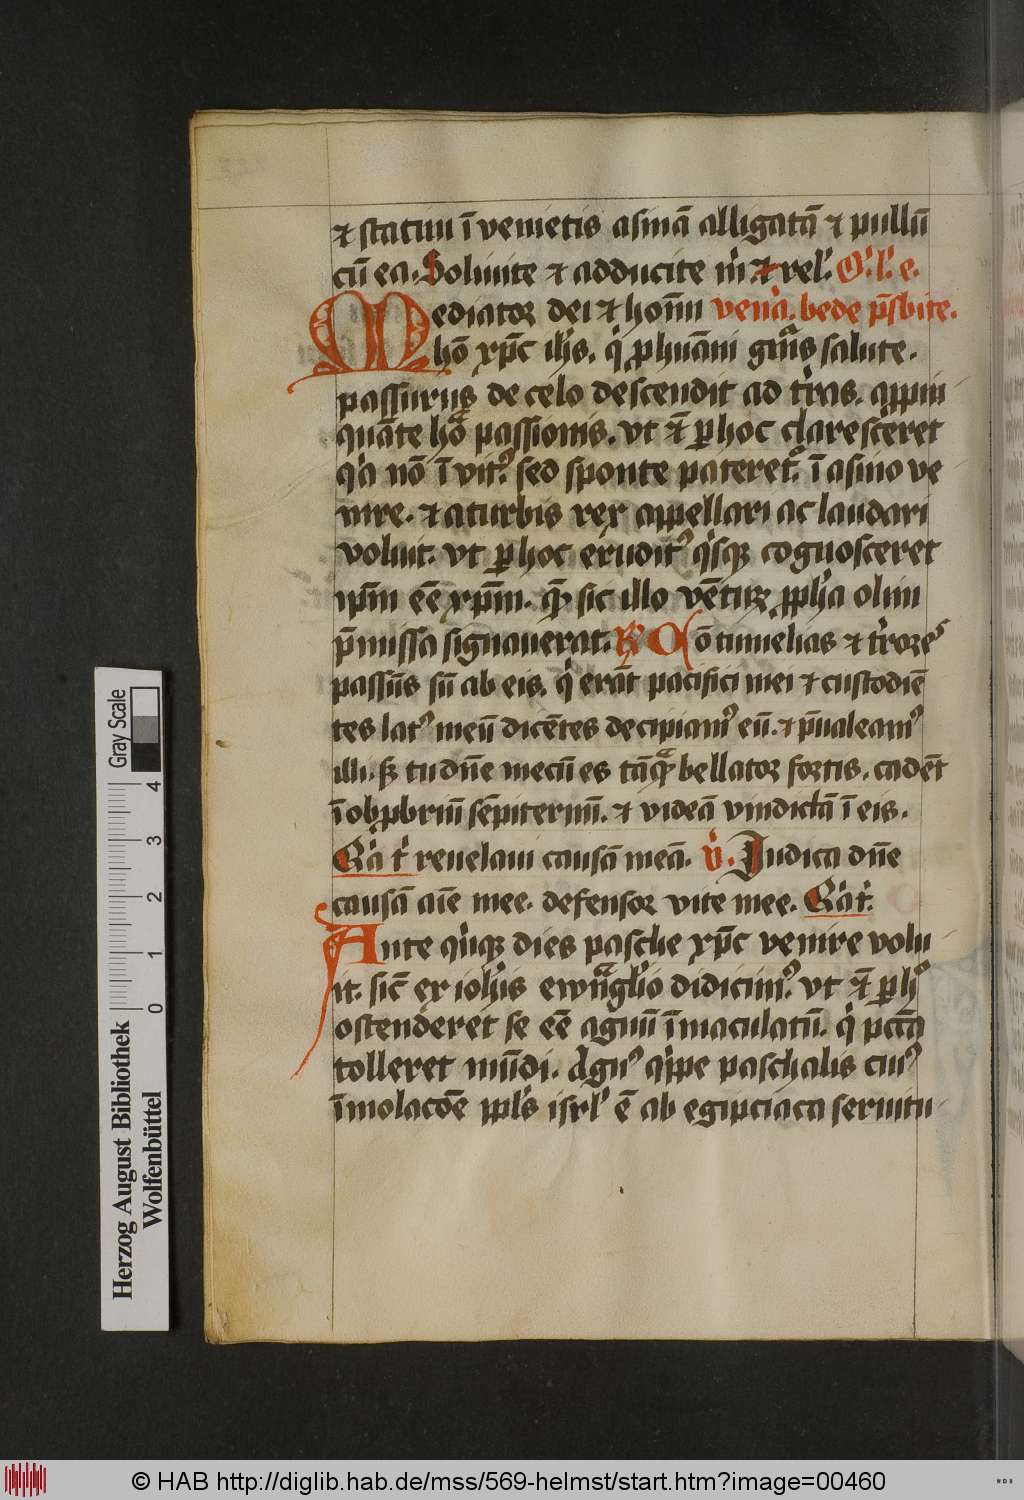 ⁊ statim ī venietis asinā alligatā ⁊ pullū
cū ea. Soluite ⁊ adducite m̍ ⁊ rel̍. O̍. l̍. e.
Mediator dei ⁊ hom̄ vena̍. bede p̄sbite.
hō xp̄c ih̄s. q̍ ꝓ hūani gn̄is salute.
passurus de celo descendit ad t̍ras. appm
quāte hoͣ passionis. vt ⁊̄ ꝑ hoc claresceret
q̍a nō ī vitꝰ sed sponte pateretꝰ. ī asino ve
nire. ⁊ a turbis rex appellari ac laudari
voluit. vt ꝑ hoc eruditꝰ q̍sqꝫ cognosceret
ip̄m eē xp̄m. q̄ sic illo vētuꝝ ꝓph̍ia olim
p̄missa signauerat. ℟ Cōtumelias ⁊ t̍roreˢ
passus sū ab eis. q̍ erāt pacifici mei ⁊ custodiē
tes latꝰ meū dicētes decipiamꝰ eū. ⁊ p̄ualeamꝰ
illi. sꝫ tu dn̄e mecū es tāqͣ bellator fortis. cadēt
ī obꝓbriū sēpiternū. ⁊ videā vindictā ī eis.
Q̍a t̍ reuelaui causā meā. v̍. Iudica dn̄e
causā aīe mee. defensor vite mee. Q̍a t̍.
Ante q̍nqꝫ dies pasche xp̄c venire volu
it. sic̄ ex ioh̍is ewͣgl̍io didicimꝰ. vt ⁊̄ ꝑ hͦ
ostenderet se eē agnū īmaculatū. q̍ pctā
tolleret mūdi. Agnꝰ q̍ppe paschalis cuiꝰ
īmolacōe ppl̍s isrl̍ ē ab egipciaca seruitu
Gray Scale
4
3
2
1
0
Herzog August Bibliothek
Wolfenbüttel
© HAB http://diglib.hab.de/mss/569-helmst/start.htm?image=00460